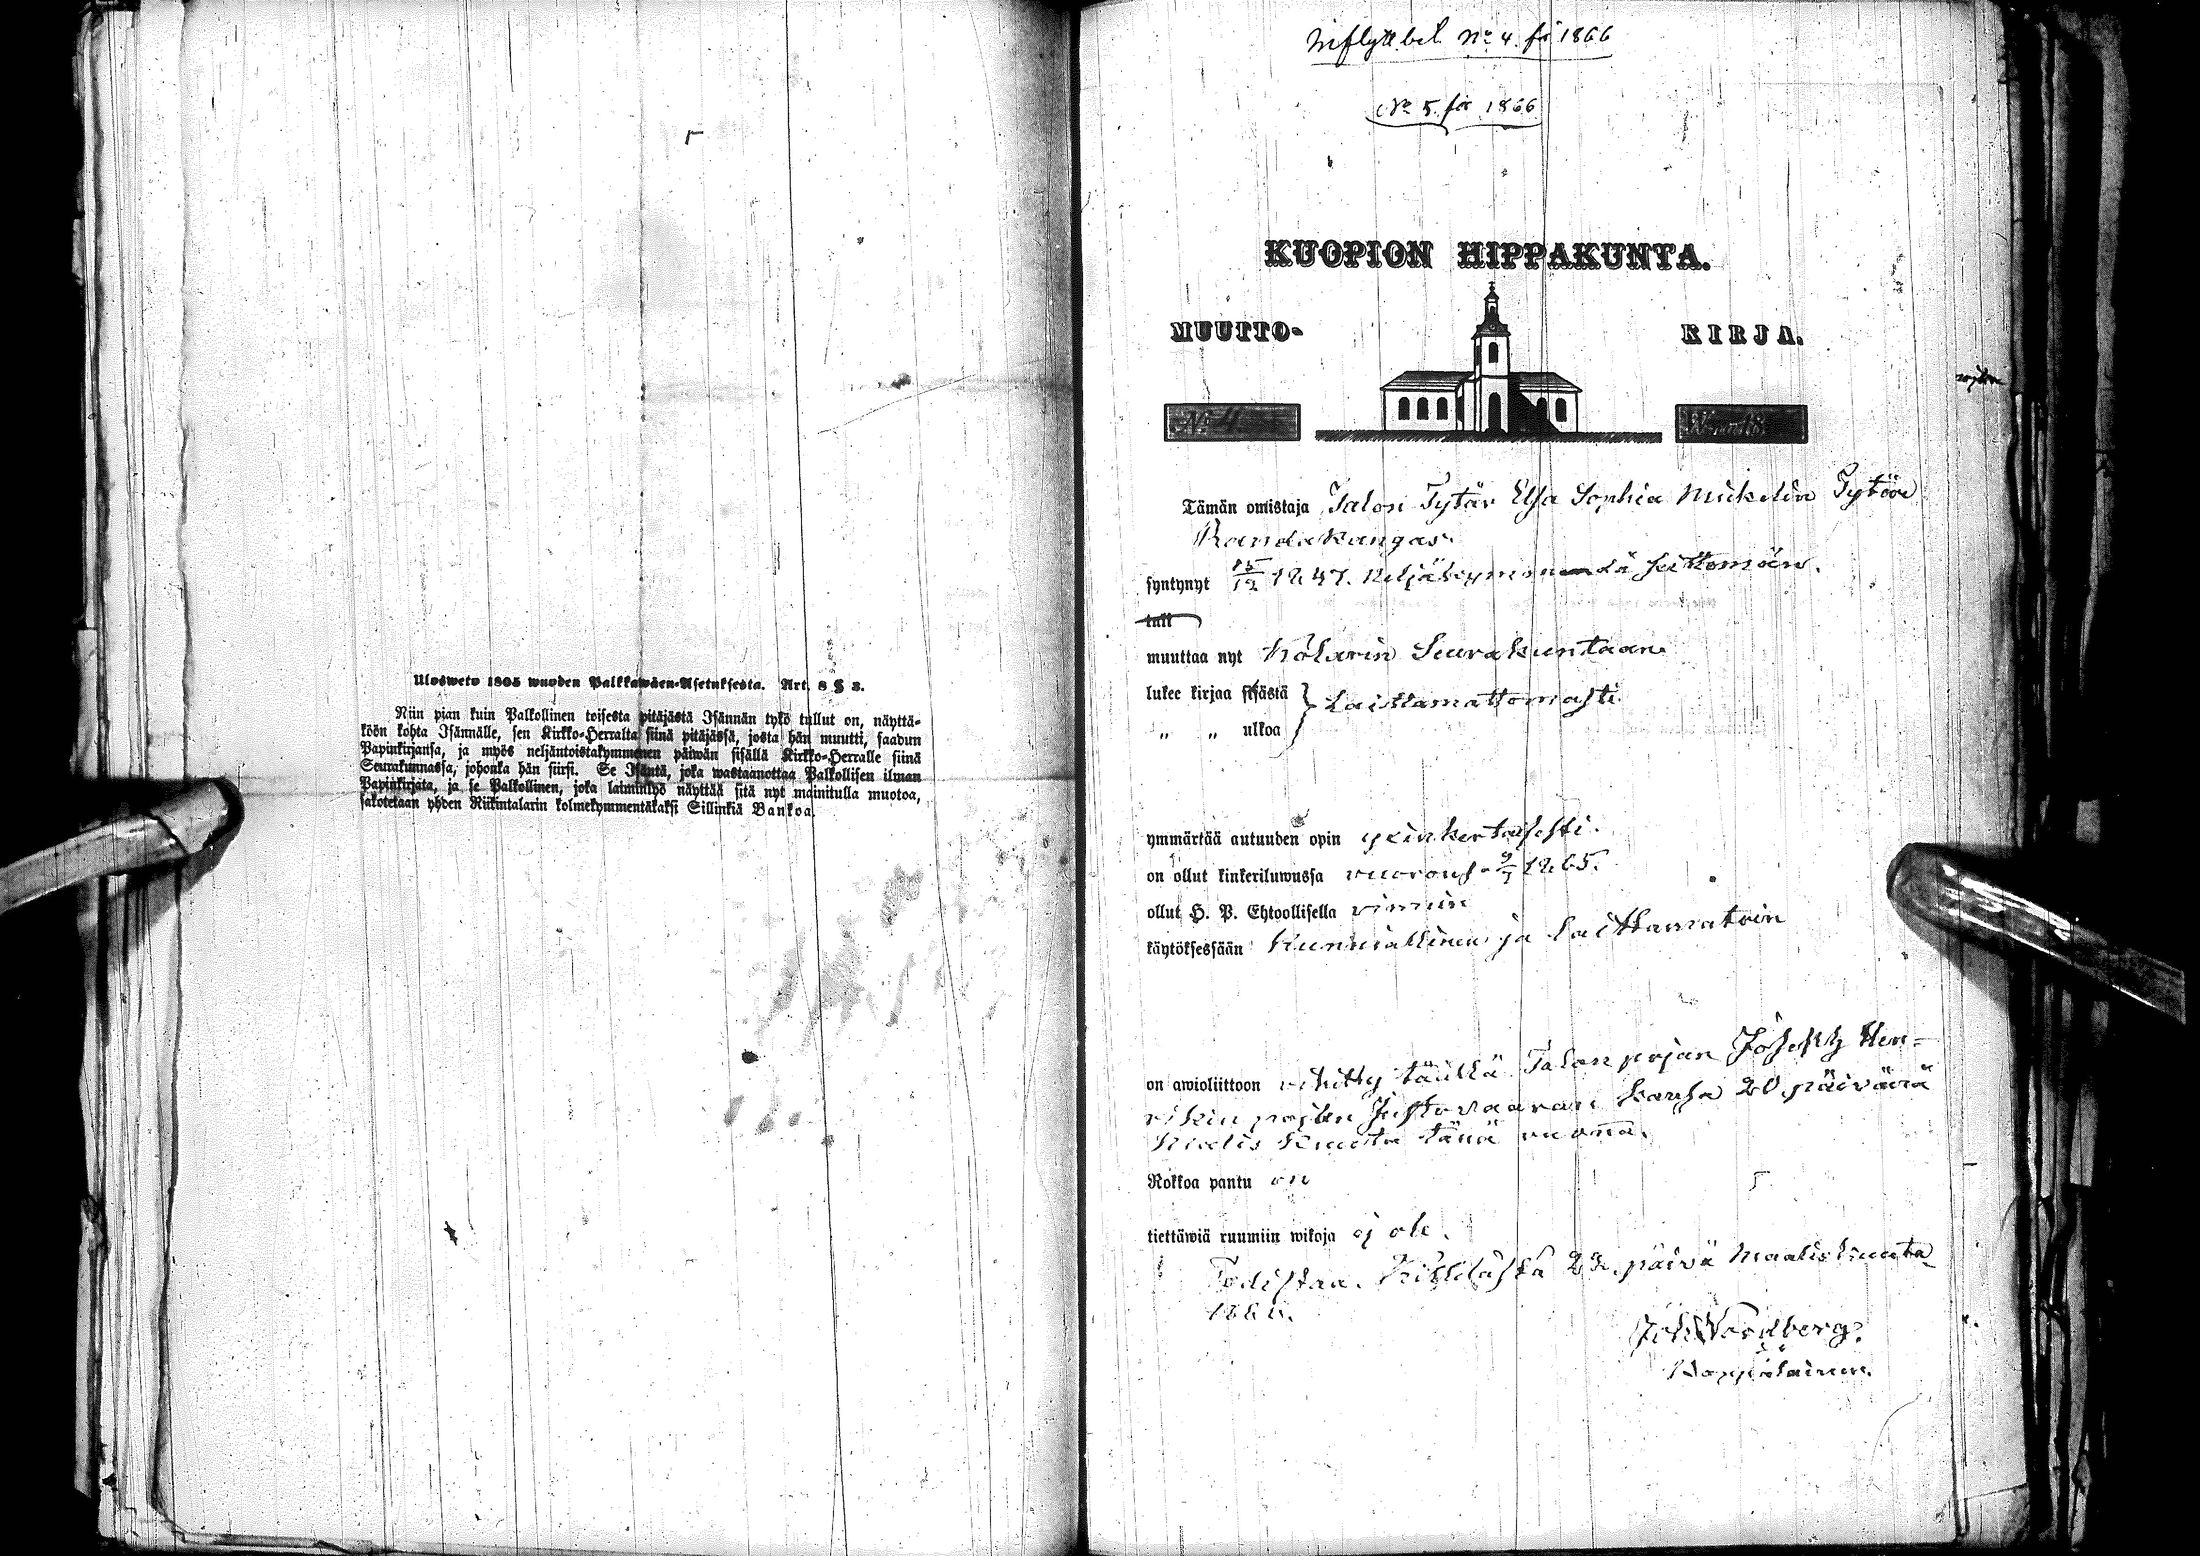 Ulosweto 1805 wuoden Palkkawäen-Asetuksesta. Art. 8 § 3.
Niin pian kuin Palkollinen toisesta pitäjästä Isännän tykö tullut on, näyttä-
köön kohta Isännälle, sen Kirkko-Herralta siinä pitäjässä, josta hän muutti, saadun
Papinkirjansa, ja myös neljäntoistakymmenen päiwän sisällä Kirkko-Herralle siinä
Seurakunnassa, johonka hän siirsi. Se Isäntä, joka wastaanottaa Palkollisen ilman
Papinkirjata, ja se Palkollinen, joka laiminlyö näyttää sitä nyt mainitulla muotoa,
sakotetaan yhden Riikintalarin kolmekymmentäkaksi Sillinkiä Bankoa.
Inflytt.bet. No 4. för 1866
No 5. för 1866
KUOPION HIPPAKUNTA.
MUUTTO- KIRJA.
No 4
Tämän omistaja Talon Tytär Elsa Sophia Mickelin Tytöre
Randakangas
syntynyt 15/12 1847. Neljäkymmendä seittemän.
tull
muuttaa nyt Kolarin Seurakuntaan
lukee kirjaa sisästä } laittamattomasti
„ „ ulkoa
ymmärtää autuuden opin yxinkertaisesti.
on ollut kinkeriluwussa 1865.
ollut H. P. Ehtoollisella
käytöksessään Kunniallinen ja laittamatoin
on awioliittoon vihitty täällä Talon pojan Joseph Hen-
rikin pojan kansa 20 päivänä
Maalis Kuuta tänä vuonna.
Rokkoa pantu on
tiettäwiä ruumiin wikoja ej ole.
Todistaa. Kittilästä päivä Maaliskuuta
1866.
Joh. Nordberg.
Kappalainen.